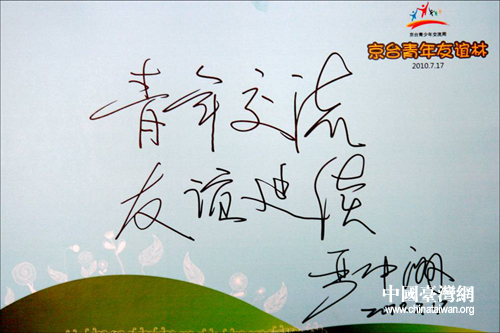 京台青少年交流周
京台青年友谊林
2010.7.17
青年交流
友谊延续
中國臺灣網
www.chinataiwan.org